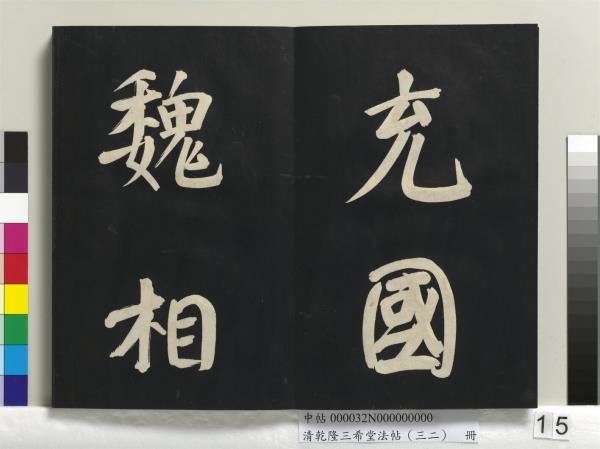 充國
魏相
中帖 000032N000000000
清乾隆三希堂法帖（三二） 冊
15